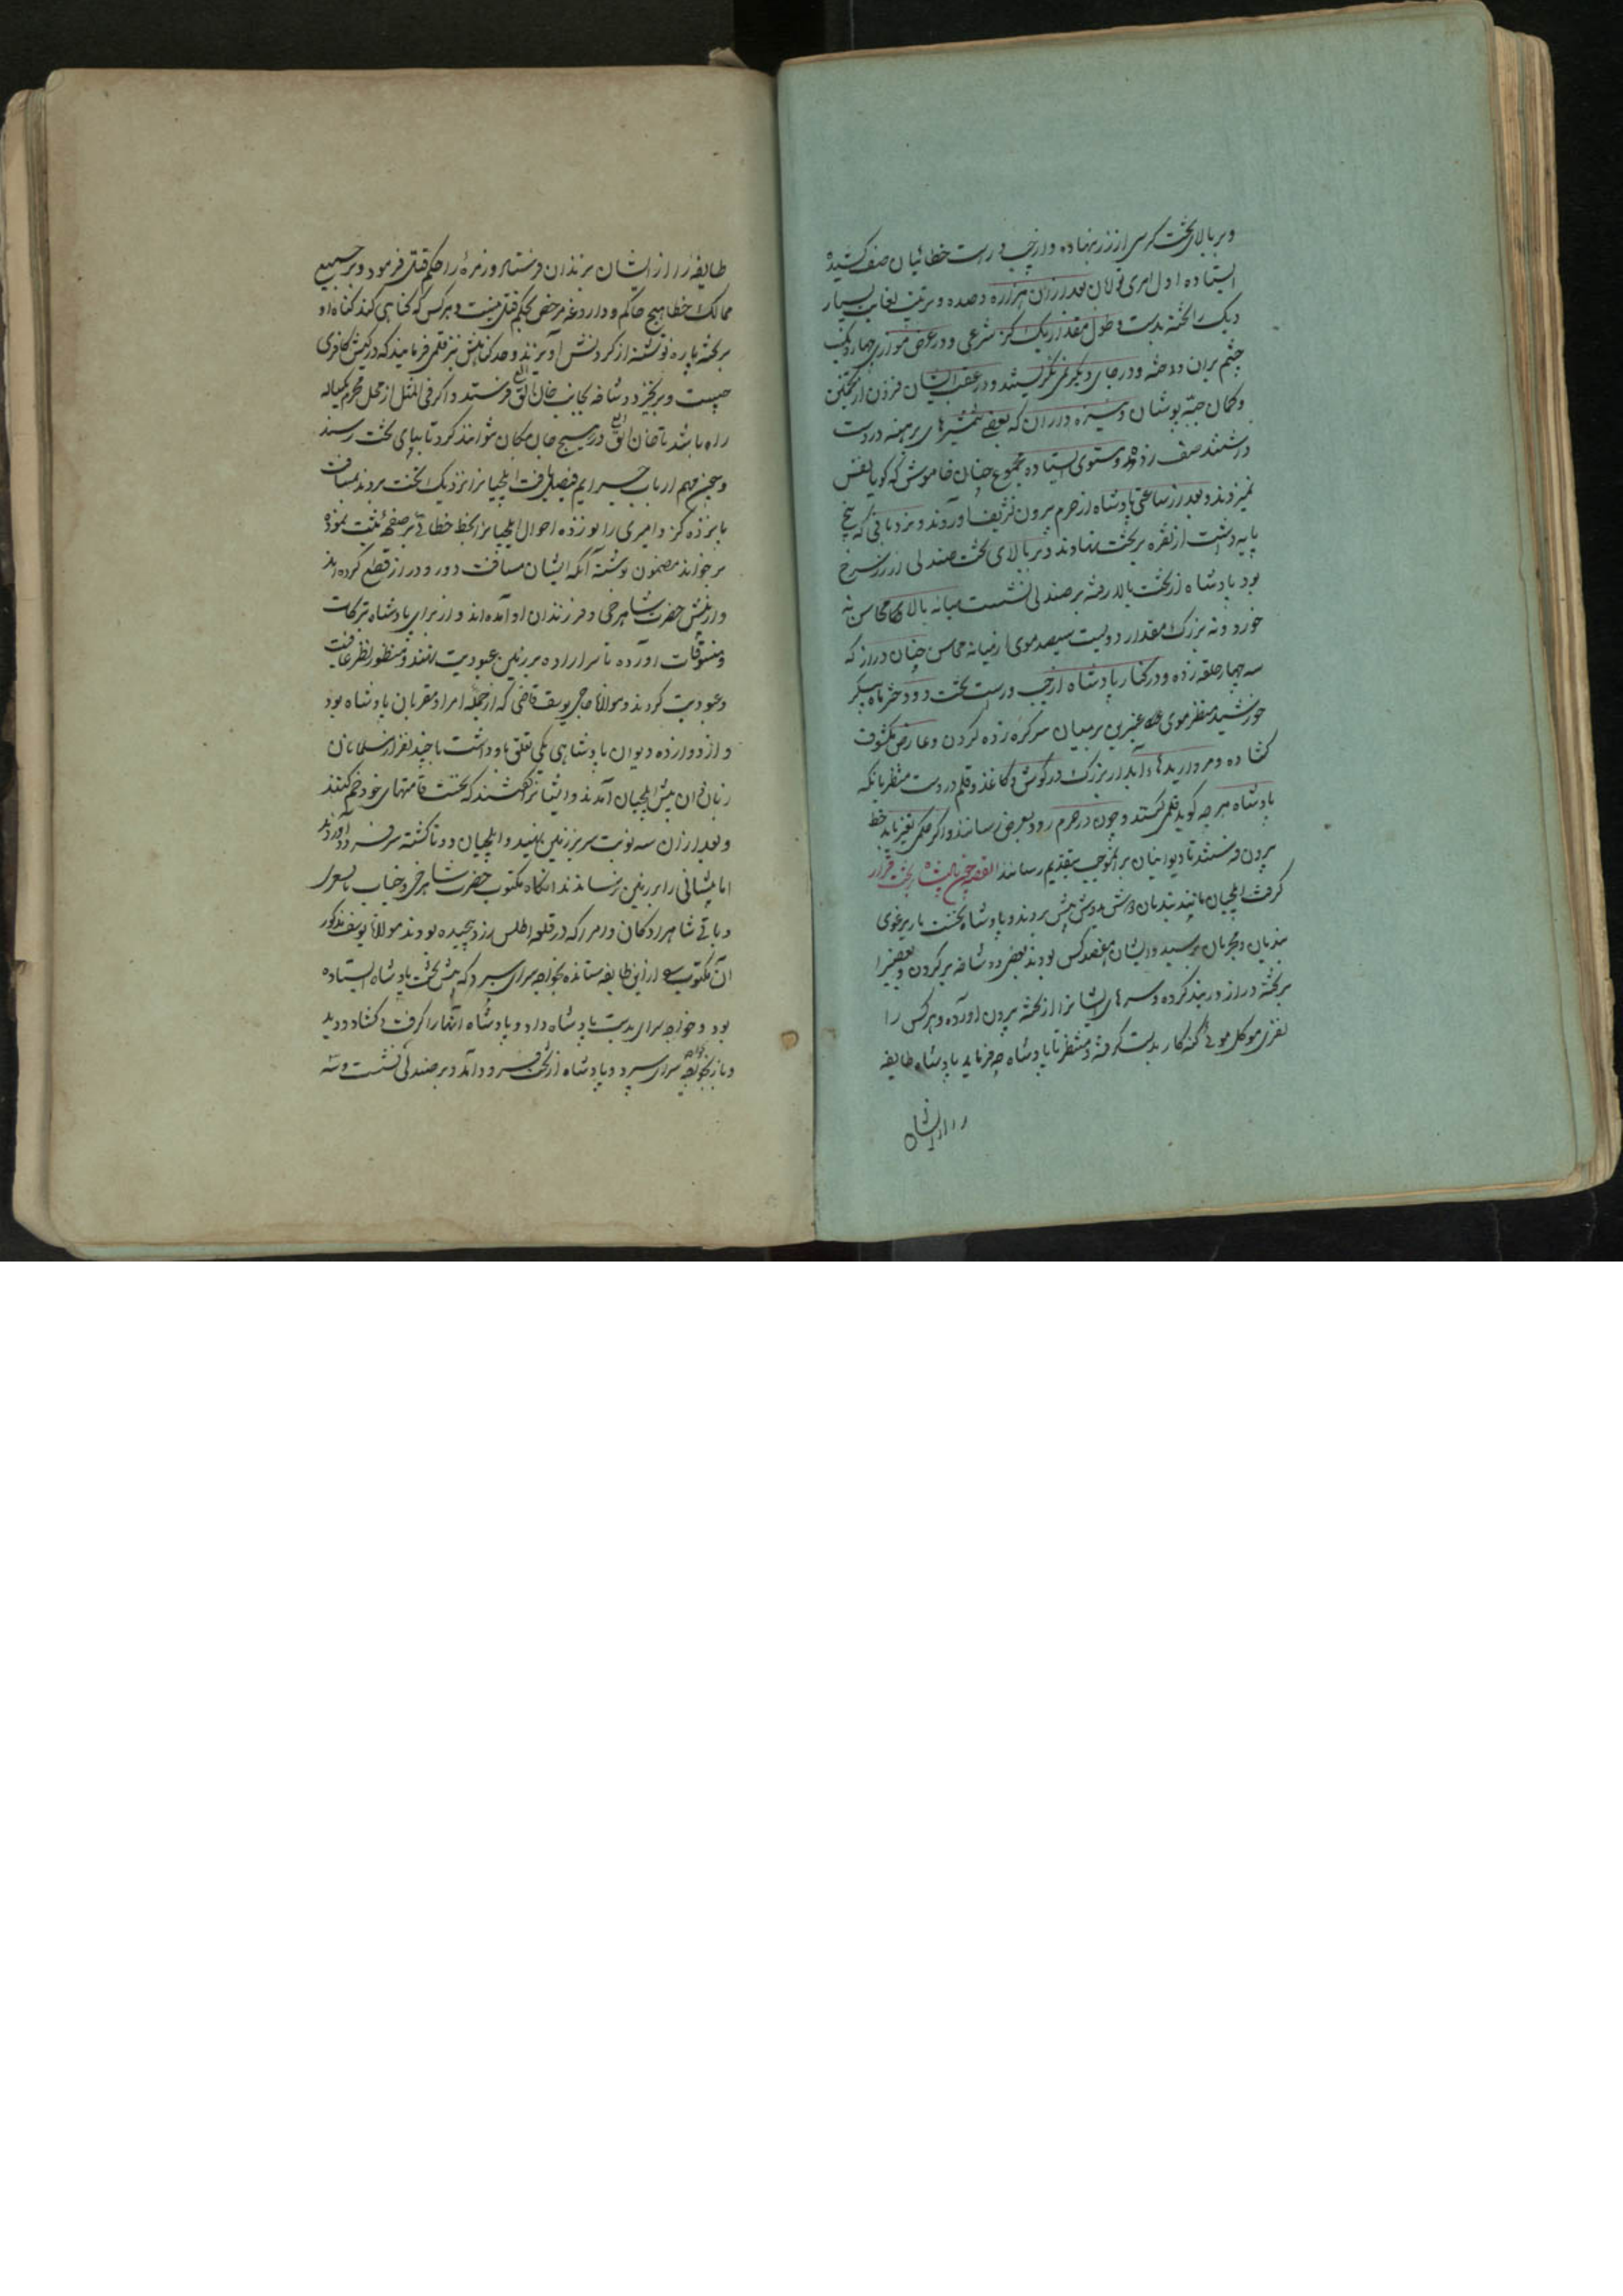 و بر بالای تخت کرسی از زر نهاده و از چپ و راست خطائیان صف کشیده
ایستاده اول امرای تومان بعد از آن هزاره و صده و برتیب بغایت بسیار
و یک را تخته بدست و طول مقدار یک کز شرعی و در عرض موازی چهار یک
چشم بران دوخته و در جای دیکر نمی نکریستند و در عقب ایشان فزون از تخمین
و کمان جبه پوشان و نیزه داران که بعضی شمشیرهای برهنه در دست
داشتند صف زده و ستوی ایستاده مجموع چنان خاموش که کویا نفس
نمیزدند و بعد از ساعتی پادشاه از حرم بیرون تشریف آوردند و نردبانی که پنج
پایه داشت از نقره بر تخت نهادند و بر بالای تخت صندلی از زر سرخ
بود پادشاه از تخت بالا رفته بر صندلی نشست میانه بالا و محاسن نه
خورد و نه بزرک مقدار دویست سیصد موی از میانه محاسن چنان دراز که
سه چهار حلقه زده و در کنار پادشاه از چپ و راست تخت دو دختر ماه پیکر
خورشید منظر موی عنبرین بر میان سر کره زده کردن و عارض مکشوف
کشاده و مرواریدهاء آبدار بزرک در کوش و کاغذ و قلم در دست منتظر بانکه
پادشاه هر چه کوید قلمی کنند و چون در حرم رود بعرض رسانند و اگر حکمی تغیر باید خط
بیرون فرستند تا دیوانیان بر انموجب بتقدیم رسانند القصه چون پادشاه بر تخت قرار
کرفت ایلچیان مانند بندیان دوش بدوش پیش بردند و پادشاه نخست یارغوی
بندیان و مجرمان پرسید و ایشان هفصد کس بودند بعضی دوشاخه بر کردن و بعضیرا
بر تخته دراز در بند کرده و سرهای ایشانرا از تخته بیرون آورده و هر کس را
نفری موکل موی کنه کار بدست کرفته و منتظر تا پادشاه چه فرماید پادشاه طایفه
را از ایشان
طایفه را از ایشان بزندان فرستاد و زمره را حکم قتل فرمود و بر جمیع
ممالک خطا هیچ حاکم و داروغه مرخص بحکم قتل نیست و هر کس که کناهی کند کناه او
بر تخته پاره نوشته از کردنش آویزند و حد کناهش نیز قلمی فرمایند که در کیش کافری
چیست و بزنجیر و دوشاخه بجانب خان بالق فرستند و اکر فی المثل از محل مجرم یکساله
راه باشد تا خان بالق در هیچ جای مکان نتوانند کرد تا بپای تخت رسند
و چون مهم ارباب جرایم فیصل یافت ایلچیانرا نزدیک تخت بردند بمسافت
پانزده کز و امیری زانو زده احوال ایلچیانرا بخط خطائی بر صفحه ثبت نموده
برخواند مضمون نوشته آنکه ایشان مسافت دور و دراز قطع کرده اند
و از پیش حضرت شاهرخی و فرزندان او آمده اند و از برای پادشاه تبرکات
و تنسوقات آورده تا سر اراده بر زمین عبودیت نهند و منظور نظر عنایت
و عبودیت کردند و مولانا حاجی یوسف قاضی که از جمله امرا و مقربان پادشاه بود
و از دوازده دیوان پادشاهی یکی تعلق باو داشت با چند نفر از مسلمانان
زبان دان پیش ایلچیان آمدند و ایشانرا گفتند که نخست قامتهای خود خم کنند
و بعد از آن سه نوبت سر بر زمین نهید و ایلچیان دوتا کشته سر فرود آوردند
اما پیشانی را بر زمین نرساندند انکاه مکتوب حضرت شاهرخی و جناب بایسنغر
و باقی شاهزادکان و امرا که در قطعه اطلس زرد پیچیده بودند مولانا یوسف مذکور
آن مکتوب را از این طایفه ستانده بخواجه سرای سپرد که پیش تخت پادشاه ایستاده
بود و خواجه سرای بدست پادشاه داد و پادشاه آنها را کرفت و کشاد و دید
و باز بخواجه سرای سپرد و پادشاه از تخت فرود آمد و بر صندلی نشست و سه